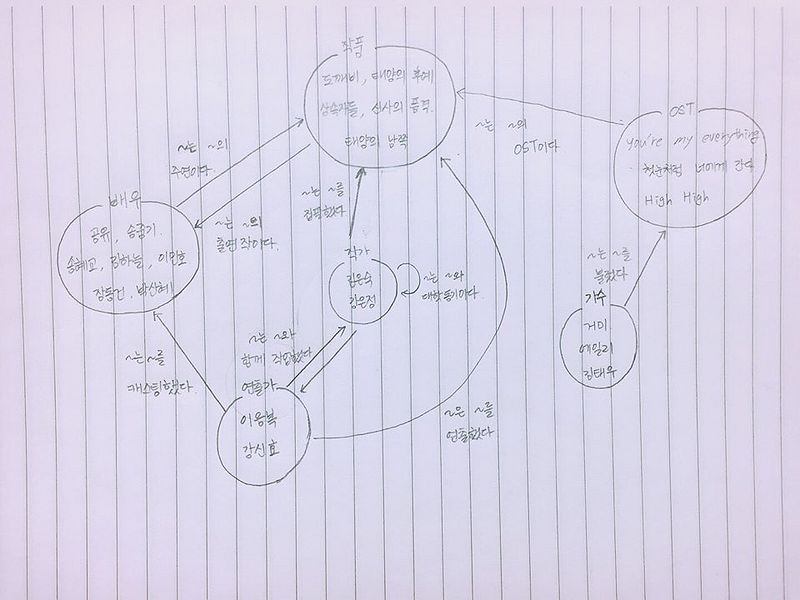 작품
도깨비, 태양의 후예
상속자들, 신사의 품격.
태양의 남쪽
~는 ~의
OST이다.
OST
you're my everything
첫눈처럼 너에게 간다
High High
~는 ~의
주연이다.
~는 ~를
집필했다
배우
공유, 송중기.
송혜교, 강하늘, 이민호
장동건, 박신혜
~는 ~의
출연작이다.
작가
김은숙
강은정
~는 ~와
대학동기이다.
~는 ~를
불렀다
가수
거미
에일리
김태우
~는 ~를
캐스팅했다.
~는 ~와
함께 작업했다
연출가
이응복
강신효
~은 ~를
연출했다